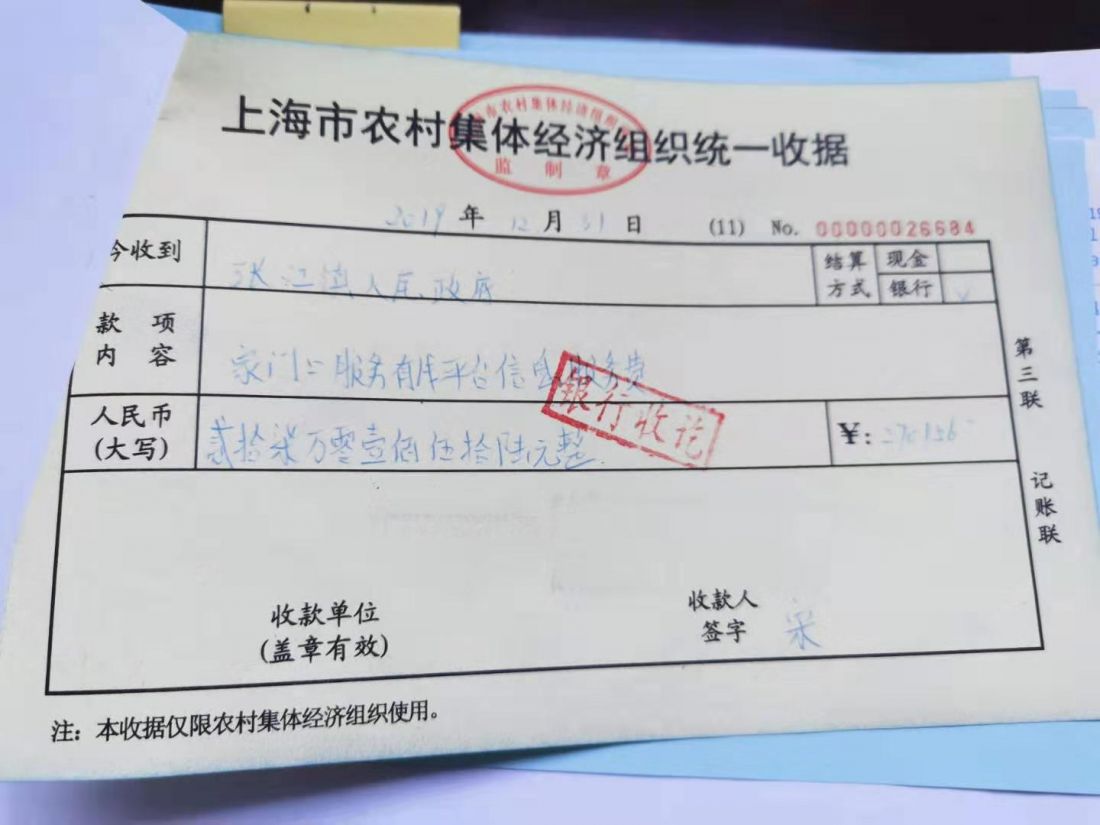 上海市农村集体经济组织统一收据
监制章
2019年12月31日 (11) No. 00000026684
今收到 张江镇人民政府 结算方式 现金 银行 √
款项内容 家门口服务有库平台信息服务费
银行收讫
人民币(大写) 贰拾柒万零壹佰伍拾陆元整 ¥: 270156
第三联 记账联
收款单位 (盖章有效)
收款人签字 宋
注：本收据仅限农村集体经济组织使用。